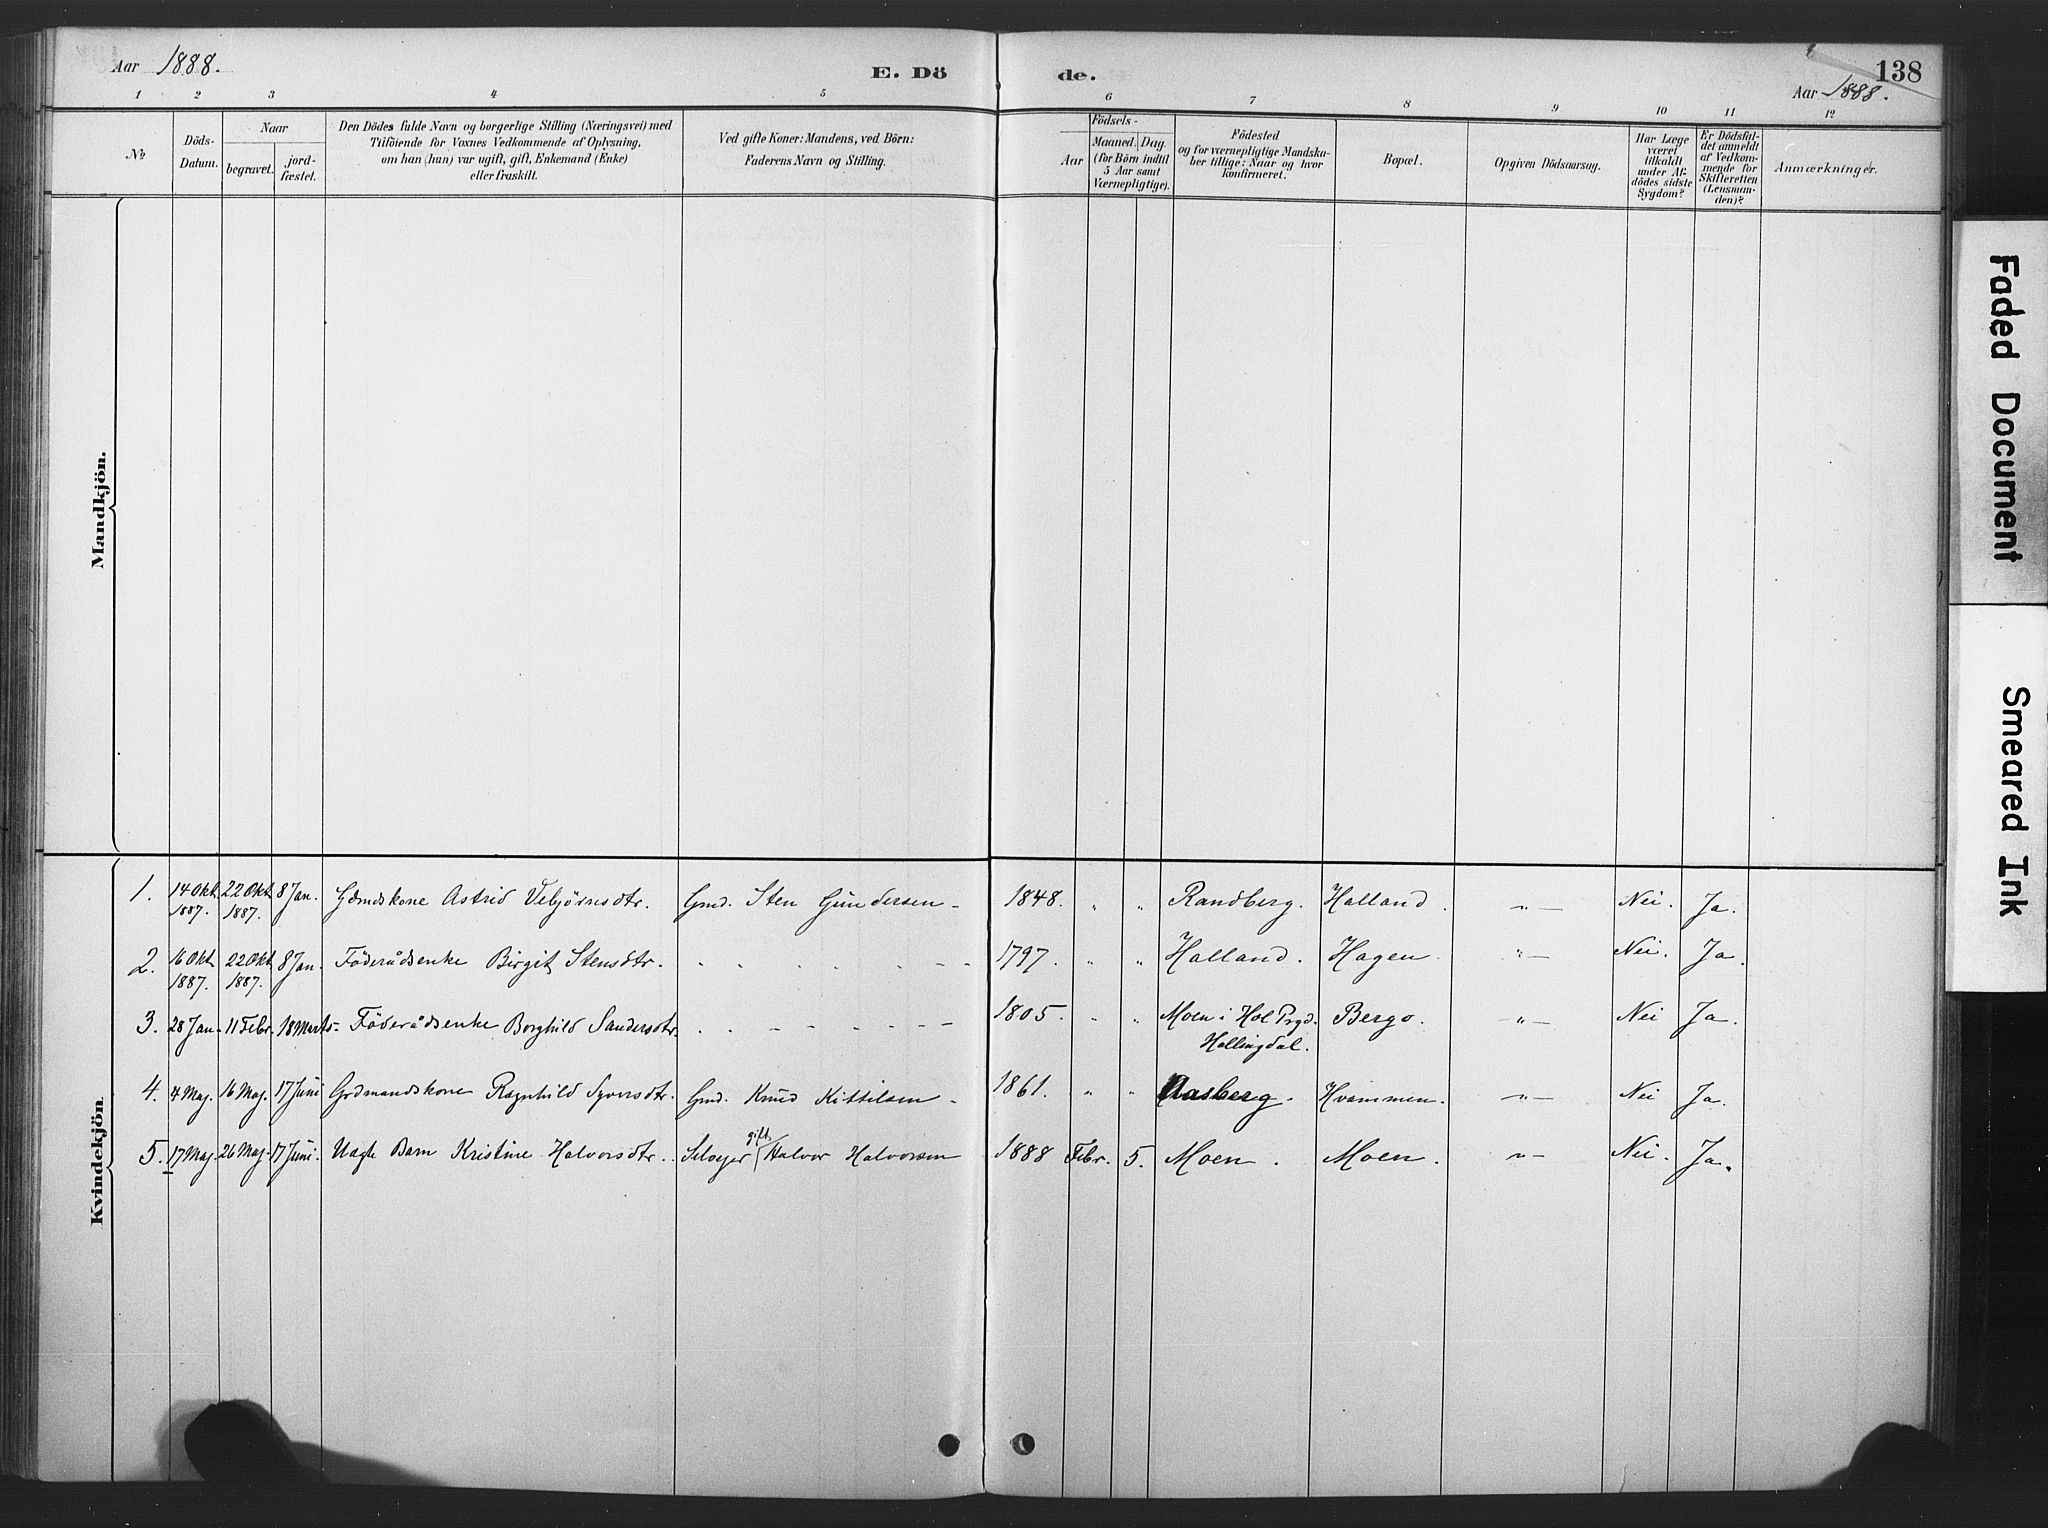 Aar 1888.
E. Dö
de.
138
Aar 1888.
1 2 3 4 5 6 7 8 9 10 11 12
No
Döds-
Datum.
Naar
begravet.
jord-
fæstet.
Den Dödes fulde Navn og borgerlige Stilling (Næringsvei) med
Tilföiende for Voxnes Vedkommende af Oplysning,
om han (hun) var ugift, gift, Enkemand (Enke)
eller fraskilt.
Ved gifte Koner: Mandens, ved Börn:
Faderens Navn og Stilling.
Födsels-
Aar
Maaned. Dag.
(for Börn indtil
5 Aar samt
Værnepligtige).
Födested
og for værnepligtige Mandska-
ber tillige: Naar og hvor
konfirmeret.
Bopæl.
Opgiven Dödsaarsag.
Har Læge
været
tilkaldt
under Af-
dödes sidste
Sygdom?
Er Dödsfal-
det anmeldt
af Vedkom-
mende for
Skifteretten
(Lensman-
den)?
Anmærkninger.
Mandkjön.
Kvindekjön.
1. 14 Okt. 1887. 22 Okt. 1887. 8 Jan. Gdmdskone Astrid Vebjörnsdtr. Gmd. Sten Gundersen - 1848. " " Randberg. Halland. -"- Nei. Ja.
2. 16 Okt. 1887. 22 Okt. 1887. 8 Jan. Föderådsenke Birgit Stensdtr. - - - - - - 1797. " " Halland. Hagen. -"- Nei. Ja.
3. 28 Jan. 11 Febr. 18 Marts - Föderådsenke Borghild Sandersdtr. - - - - - - 1805. " " Moen i Hol Prgd. Bergo. -"- Nei Ja.
Hallingdal.
4. 4 Maj. 16 Maj. 17 Juni Grdmandskone Ragnhild Syversdtr. Gmd. Knud Kittilsen - 1861. " " Aasberg. Hvammen. -"- Nei Ja.
5. 17 Maj. 26 Maj. 17 Juni. Uægte Barn Kristine Halvorsdtr. Selvejer gift Halvor Halvorsen 1888 Febr. 5. Moen. Moen. -"- Nei. Ja.
Faded Document
Smeared Ink